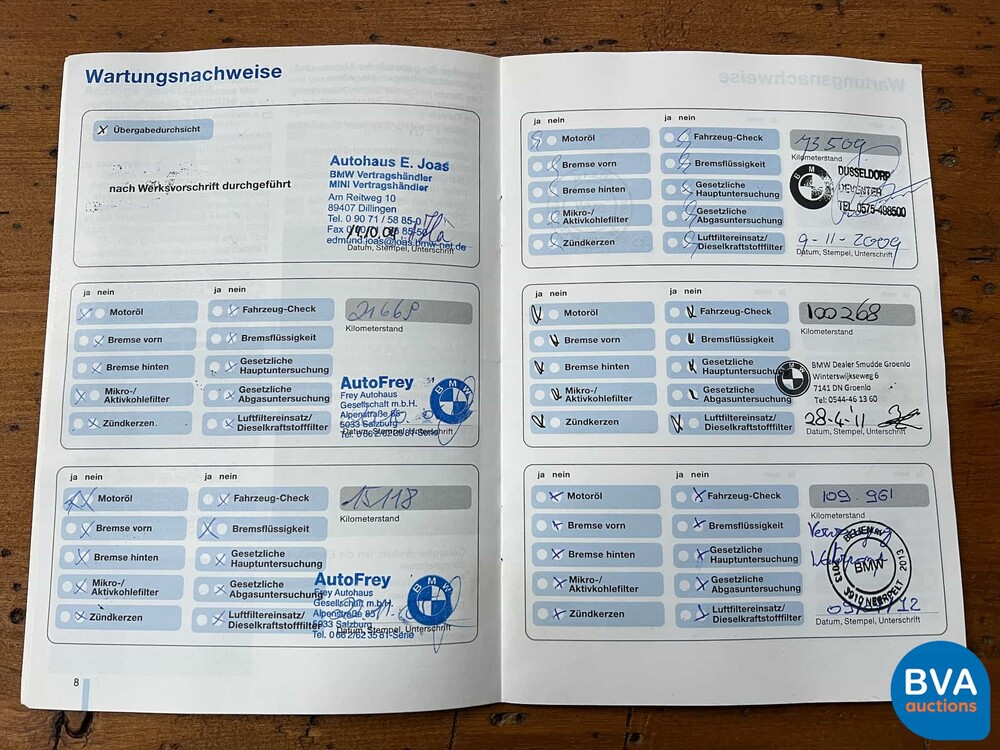 Wartungsnachweise
X Übergabedurchsicht
nach Werksvorschrift durchgeführt
Autohaus E. Joas
BMW Vertragshändler
MINI Vertragshändler
Am Reitweg 10
89407 Dillingen
Tel. 0 90 71 / 58 85-0
Fax
edmund.joas@joas.bmw-net.de
Datum, Stempel, Unterschrift
ja nein
ja nein
Motoröl
Fahrzeug-Check
21668
Bremse vorn
Bremsflüssigkeit
Kilometerstand
Bremse hinten
Gesetzliche
Hauptuntersuchung
Mikro-/
Aktivkohlefilter
Gesetzliche
Abgasuntersuchung
Zündkerzen
Luftfiltereinsatz/
Dieselkraftstofffilter
AutoFrey
Frey Autohaus
Gesellschaft m.b.H.
Alpenstraße 85
5033 Salzburg
Tel. 0 66 2/62 35 81-Serie
BMW
Datum, Stempel, Unterschrift
ja nein
ja nein
Motoröl
Fahrzeug-Check
15118
Bremse vorn
Bremsflüssigkeit
Kilometerstand
Bremse hinten
Gesetzliche
Hauptuntersuchung
Mikro-/
Aktivkohlefilter
Gesetzliche
Abgasuntersuchung
Zündkerzen
Luftfiltereinsatz/
Dieselkraftstofffilter
AutoFrey
Frey Autohaus
Gesellschaft m.b.H.
Alpenstraße 85
5033 Salzburg
Tel. 0 66 2/62 35 81-Serie
BMW
Datum, Stempel, Unterschrift
8
ja nein
ja nein
Motoröl
Fahrzeug-Check
73509
Bremse vorn
Bremsflüssigkeit
Kilometerstand
Bremse hinten
Gesetzliche
Hauptuntersuchung
Mikro-/
Aktivkohlefilter
Gesetzliche
Abgasuntersuchung
Zündkerzen
Luftfiltereinsatz/
Dieselkraftstofffilter
BMW
DUSSELDORP
DEVENTER
TEL. 0575-498500
9-11-2009
Datum, Stempel, Unterschrift
ja nein
ja nein
Motoröl
Fahrzeug-Check
100268
Bremse vorn
Bremsflüssigkeit
Kilometerstand
Bremse hinten
Gesetzliche
Hauptuntersuchung
Mikro-/
Aktivkohlefilter
Gesetzliche
Abgasuntersuchung
Zündkerzen
Luftfiltereinsatz/
Dieselkraftstofffilter
BMW Dealer Smudde Groenlo
Winterswijkseweg 6
7141 DN Groenlo
Tel: 0544-46 13 60
28-4-'11
Datum, Stempel, Unterschrift
ja nein
ja nein
Motoröl
Fahrzeug-Check
109.961
Bremse vorn
Bremsflüssigkeit
Kilometerstand
Bremse hinten
Gesetzliche
Hauptuntersuchung
Mikro-/
Aktivkohlefilter
Gesetzliche
Abgasuntersuchung
Zündkerzen
Luftfiltereinsatz/
Dieselkraftstofffilter
BMW
3910 NEERPELT
Datum, Stempel, Unterschrift
BVA
auctions